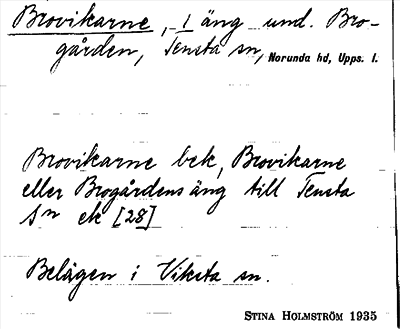 Brovikarne, 1 äng und. Bro-
gården, Tensta sn, Norunda hd, Upps. l.
Brovikarne bek, Brovikarne
eller Brogårdens äng till Tensta
sn ek [28]
Belägen i Viksta sn.
STINA HOLMSTRÖM 1935